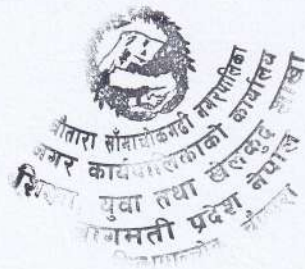 चौतारा साँगाचोकगढी नगरपालिका
नगर कार्यपालिकाको कार्यालय
शिक्षा, युवा तथा खेलकुद शाखा
बागमती प्रदेश नेपाल